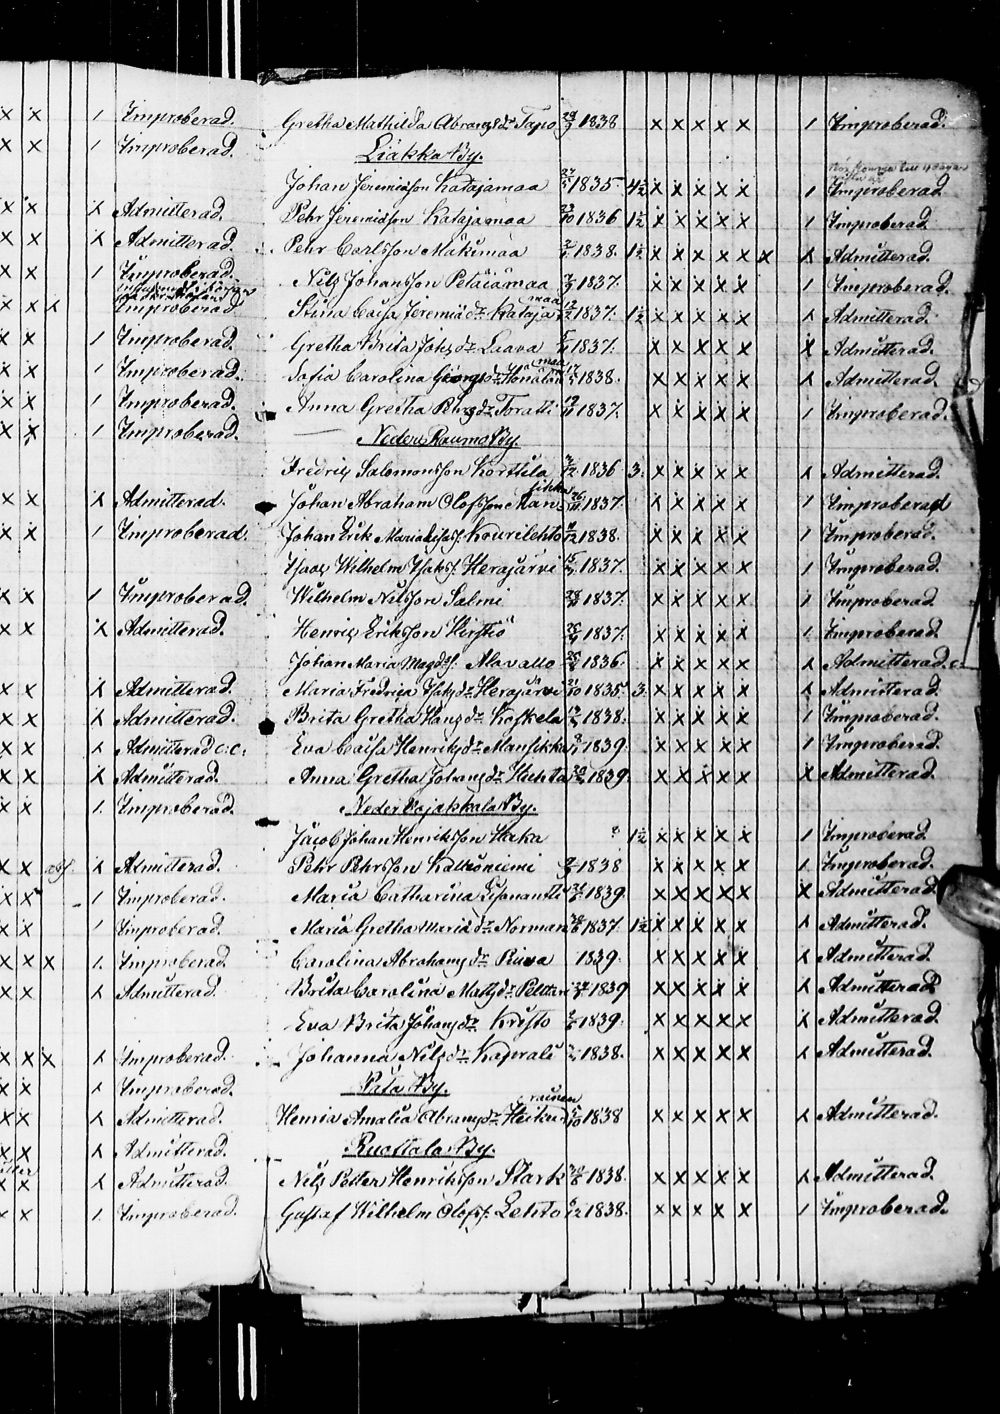 x x 1 Improberad.
x x 1 Improberad.
x x x Admitterad.
x x x Admitterad.
x x 1 Improberad.
x x x Improberad
x x 1 Improberad.
x x 1 Improberad.
x x 1 Improberad.
x x 1 Improberad.
x x x Admitterad.
x x 1 Improberad.
x x 1 Improberad.
x x x Admitterad.
x x x Admitterad.
x x x Admitterad.
x x x Admitterad c.c.
x x x Admitterad.
x x 1. Improberad.
x x x Admitterad.
x x 1 Improberad.
x x 1 Improberad.
x x x 1. Improberad.
x x x Admitterad.
x x x x Improberad.
x x x Improberad.
x x x Admitterad.
x x x Admitterad.
x x x Admitterad.
x x 1. Improberad.
Gretha Mathilda Abramsdr Tapo 1838 x x x x x 1 Improberad.
Liakka By.
Johan Jeremiasson Katajamaa 1835 4½ x x x x x 1 Improberad
Pehr Jeremiasson Katajamaa 1836 1½ x x x x x 1 Improberad
Pehr Carlsson Mäkimaa 1838. 1½ x x x x x x x Admitterad.
Nils Johansson Peläjämaa 1837. x x x x x 1 Improberad.
Stina Cajsa Jeremiädr Katajamaa 1837. 1½ x x x x x x Admitterad.
Gretha Brita Johsdr Laava 1837. x x x x x x Admitterad.
Sofia Carolina Georgsdr 1838. x x x x x x Admitterad.
Anna Gretha Pehrsdr Toratti 1837. x x x x x 1 Improberad.
Neder Raumo By.
Fredric Salomonsson Korttila 1836 3. x x x x x x Admitterad.
Johan Abraham Olofsson Mansikka 1837. x x x x x 1 Improberad
Johan Erik Kourilehto 1838. x x x x x 1 Improberad.
Isaac Wilhelm Isakss. Herajärvi 1837. x x x x x 1 Improberad.
Wilhelm Nilsson Salmi 1837. x x x x x 1 Improberad.
Henric Eriksson 1837. x x x x x 1 Improberad.
Johan Maria Magds. Alavatto 1836. x x x x x x Admitterad. c.
Maria Fredrica Isaksdr Herajärvi 1835. 3. x x x x x x Admitterad.
Brita Gretha Hansdr Koskela 1838. x x x x x 1 Improberad.
Eva Cajsa Henriksdr Mansikka 1839. x x x x x 1 Improberad.
Anna Gretha Johansdr Huhta 1839. x x x x x x Admitterad.
Neder Vojakkala By.
Jacob Johan Henriksson Haka ? 1½ x x x x x 1 Improberad
Pehr Pehrsson Kalkoniemi 1838 x x x x x 1 Improberad.
Maria Catharina 1839. x x x x x x Admitterad
Maria Gretha Mariädr Norman 1837. 1½ x x x x x x Admitterad.
Carolina Abrahamsdr Riiva 1839. x x x x x x Admitterad.
Brita Carolina Matsdr Pelttari 1839 x x x x x x Admitterad
Eva Brita Johansdr Kristo 1839. x x x x x x Admitterad.
Johanna Nilsdr Kaprali 1838. x x x x x x Admitterad.
Pata By.
Henrica Amalia Abramsdr 1838 x x x x x x Admitterad.
Ruottala By.
Nils Petter Henriksson Stark 1838. x x x x x x Admitterad.
Gustaf Wilhelm Olofss. Lehto 1838. x x x x x 1 Improberad.